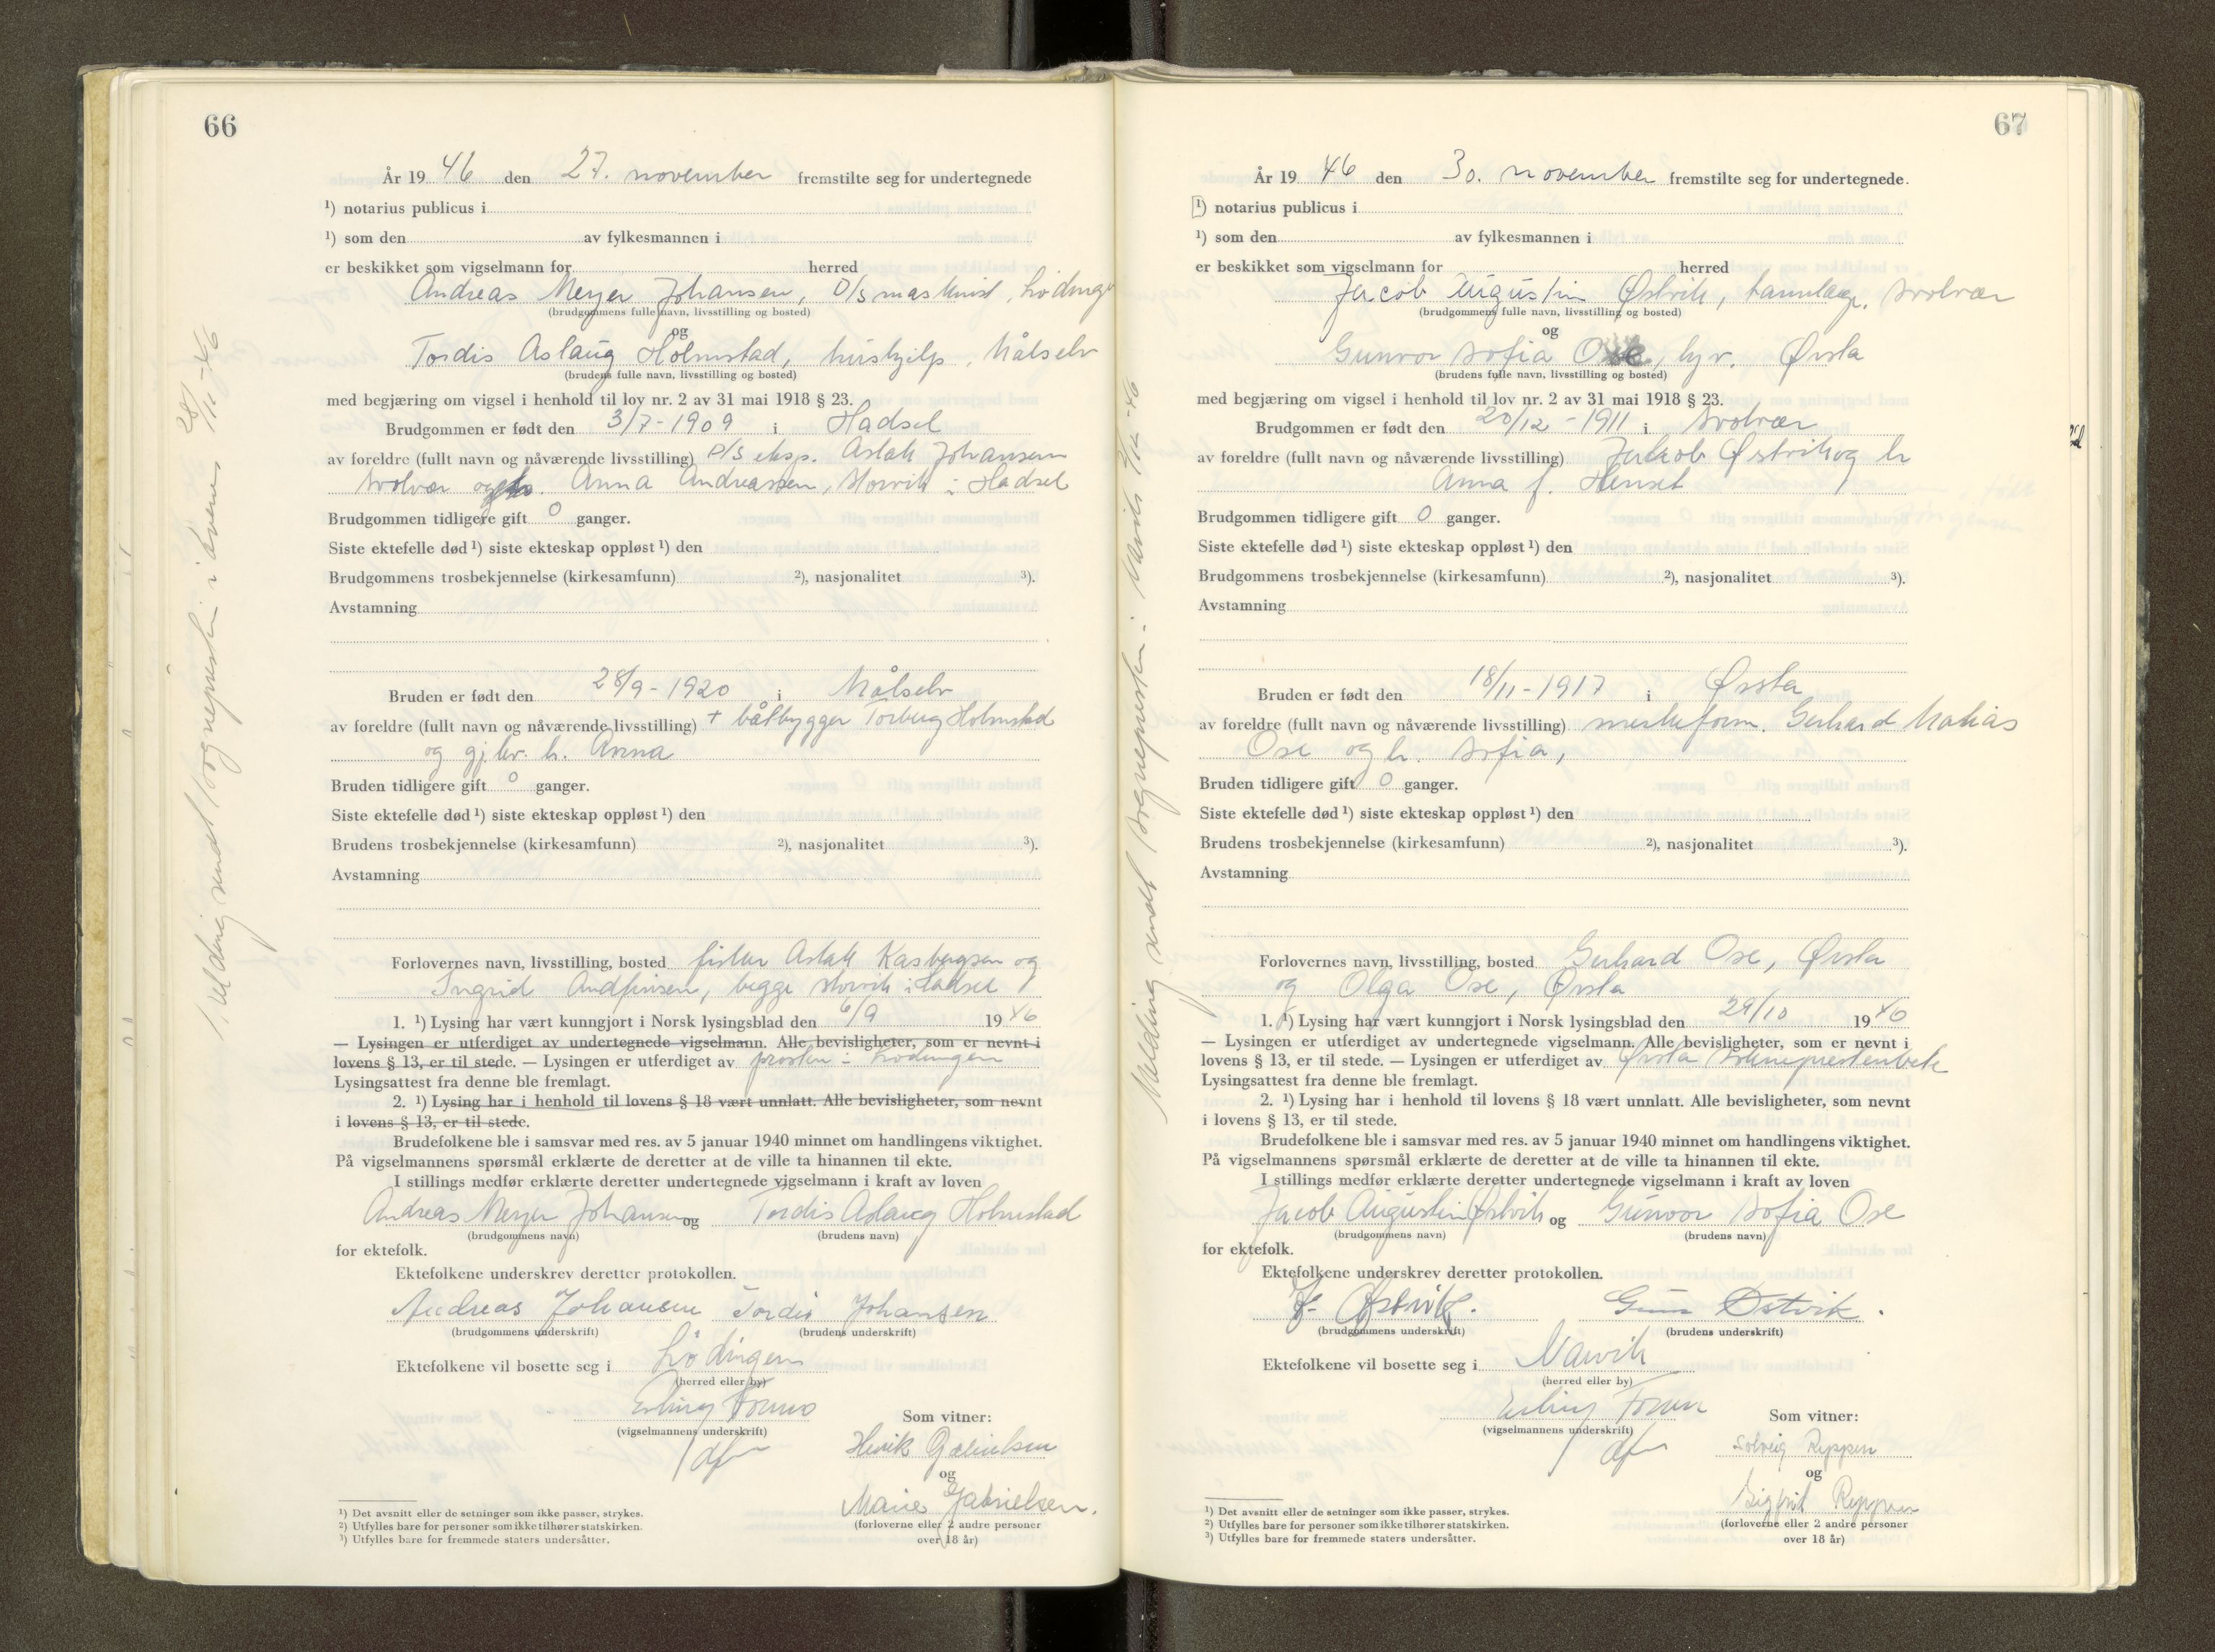 66
År 19 46 den 27. november fremstilte seg for undertegnede
¹) notarius publicus i
¹) som den av fylkesmannen i
er beskikket som vigselmann for herred
Andreas Meyer Johansen, D/S maskinist, Lødingen
(brudgommens fulle navn, livsstilling og bosted)
og
Tordis Aslaug Holmstad, hushjelp, Målselv
(brudens fulle navn, livsstilling og bosted)
med begjæring om vigsel i henhold til lov nr. 2 av 31 mai 1918 § 23.
Brudgommen er født den 3/7-1909 i Hadsel
av foreldre (fullt navn og nåværende livsstilling) D/S eksp. Aslak Johansen
Svolvær og Anna Andreassen, Storvik i Hadsel
Brudgommen tidligere gift 0 ganger.
Siste ektefelle død ¹) siste ekteskap oppløst ¹) den
Brudgommens trosbekjennelse (kirkesamfunn) ²), nasjonalitet ³).
Avstamning
Bruden er født den 28/9-1920 i Målselv
av foreldre (fullt navn og nåværende livsstilling) + båtbygger Torberg Holmstad
og gjlev. h. Anna
Bruden tidligere gift 0 ganger.
Siste ektefelle død ¹) siste ekteskap oppløst ¹) den
Brudens trosbekjennelse (kirkesamfunn) ²), nasjonalitet ³).
Avstamning
Forlovernes navn, livsstilling, bosted fisker Aslak Kasbergsen og
Ingrid Andfinsen, begge Storvik i Hadsel
1. ¹) Lysing har vært kunngjort i Norsk lysingsblad den 6/9 19 46
— Lysingen er utferdiget av undertegnede vigselmann. Alle bevisligheter, som er nevnt i
lovens § 13, er til stede. — Lysingen er utferdiget av prosten i Lødingen
Lysingsattest fra denne ble fremlagt.
2. ¹) Lysing har i henhold til lovens § 18 vært unnlatt. Alle bevisligheter, som nevnt
i lovens § 13, er til stede.
Brudefolkene ble i samsvar med res. av 5 januar 1940 minnet om handlingens viktighet.
På vigselmannens spørsmål erklærte de deretter at de ville ta hinannen til ekte.
I stillings medfør erklærte deretter undertegnede vigselmann i kraft av loven
Andreas Meyer Johansen og Tordis Aslaug Holmstad
(brudgommens navn) (brudens navn)
for ektefolk.
Ektefolkene underskrev deretter protokollen.
Andreas Johansen Tordis Johansen
(brudgommens underskrift) (brudens underskrift)
Ektefolkene vil bosette seg i Lödingen
(herred eller by)
Erling Tønno
(vigselmannens underskrift)
Som vitner:
Henrik Gabrielsen
og
Marie Gabrielsen.
(forloverne eller 2 andre personer
over 18 år)
¹) Det avsnitt eller de setninger som ikke passer, strykes.
²) Utfylles bare for personer som ikke tilhører statskirken.
³) Utfylles bare for fremmede staters undersåtter.
Melding sendt sogneprestene i 28/11-46
67
År 19 46 den 30. november fremstilte seg for undertegnede.
¹) notarius publicus i
¹) som den av fylkesmannen i
er beskikket som vigselmann for herred
Jacob Augustin Østvik, tannlæge, Svolvær
(brudgommens fulle navn, livsstilling og bosted)
og
Gunvor Sofia Ose, lyv. Ørsta
(brudens fulle navn, livsstilling og bosted)
med begjæring om vigsel i henhold til lov nr. 2 av 31 mai 1918 § 23.
Brudgommen er født den 20/12-1911 i Svolvær
av foreldre (fullt navn og nåværende livsstilling) Jakob Østvik og h
Anna f. Henset
Brudgommen tidligere gift 0 ganger.
Siste ektefelle død ¹) siste ekteskap oppløst ¹) den
Brudgommens trosbekjennelse (kirkesamfunn) ²), nasjonalitet ³).
Avstamning
Bruden er født den 18/11-1917 i Ørsta
av foreldre (fullt navn og nåværende livsstilling) Gerhard Matias
Ose og h. Sofia,
Bruden tidligere gift 0 ganger.
Siste ektefelle død ¹) siste ekteskap oppløst ¹) den
Brudens trosbekjennelse (kirkesamfunn) ²), nasjonalitet ³).
Avstamning
Forlovernes navn, livsstilling, bosted Gerhard Ose, Ørsta
og Olga Ose, Ørsta
1. ¹) Lysing har vært kunngjort i Norsk lysingsblad den 29/10 19 46
— Lysingen er utferdiget av undertegnede vigselmann. Alle bevisligheter, som er nevnt i
lovens § 13, er til stede. — Lysingen er utferdiget av Ørsta
Lysingsattest fra denne ble fremlagt.
2. ¹) Lysing har i henhold til lovens § 18 vært unnlatt. Alle bevisligheter, som nevnt
i lovens § 13, er til stede.
Brudefolkene ble i samsvar med res. av 5 januar 1940 minnet om handlingens viktighet.
På vigselmannens spørsmål erklærte de deretter at de ville ta hinannen til ekte.
I stillings medfør erklærte deretter undertegnede vigselmann i kraft av loven
Jacob Augustin Østvik og Gunvor Sofia Ose
(brudgommens navn) (brudens navn)
for ektefolk.
Ektefolkene underskrev deretter protokollen.
J. Østvik. Gunvor Østvik.
(brudgommens underskrift) (brudens underskrift)
Ektefolkene vil bosette seg i Narvik
(herred eller by)
Erling
(vigselmannens underskrift)
Som vitner:
Solveig Reppen
og
Sigfrid Reppen
(forloverne eller 2 andre personer
over 18 år)
¹) Det avsnitt eller de setninger som ikke passer, strykes.
²) Utfylles bare for personer som ikke tilhører statskirken.
³) Utfylles bare for fremmede staters undersåtter.
Melding sendt sognepresten i Narvik